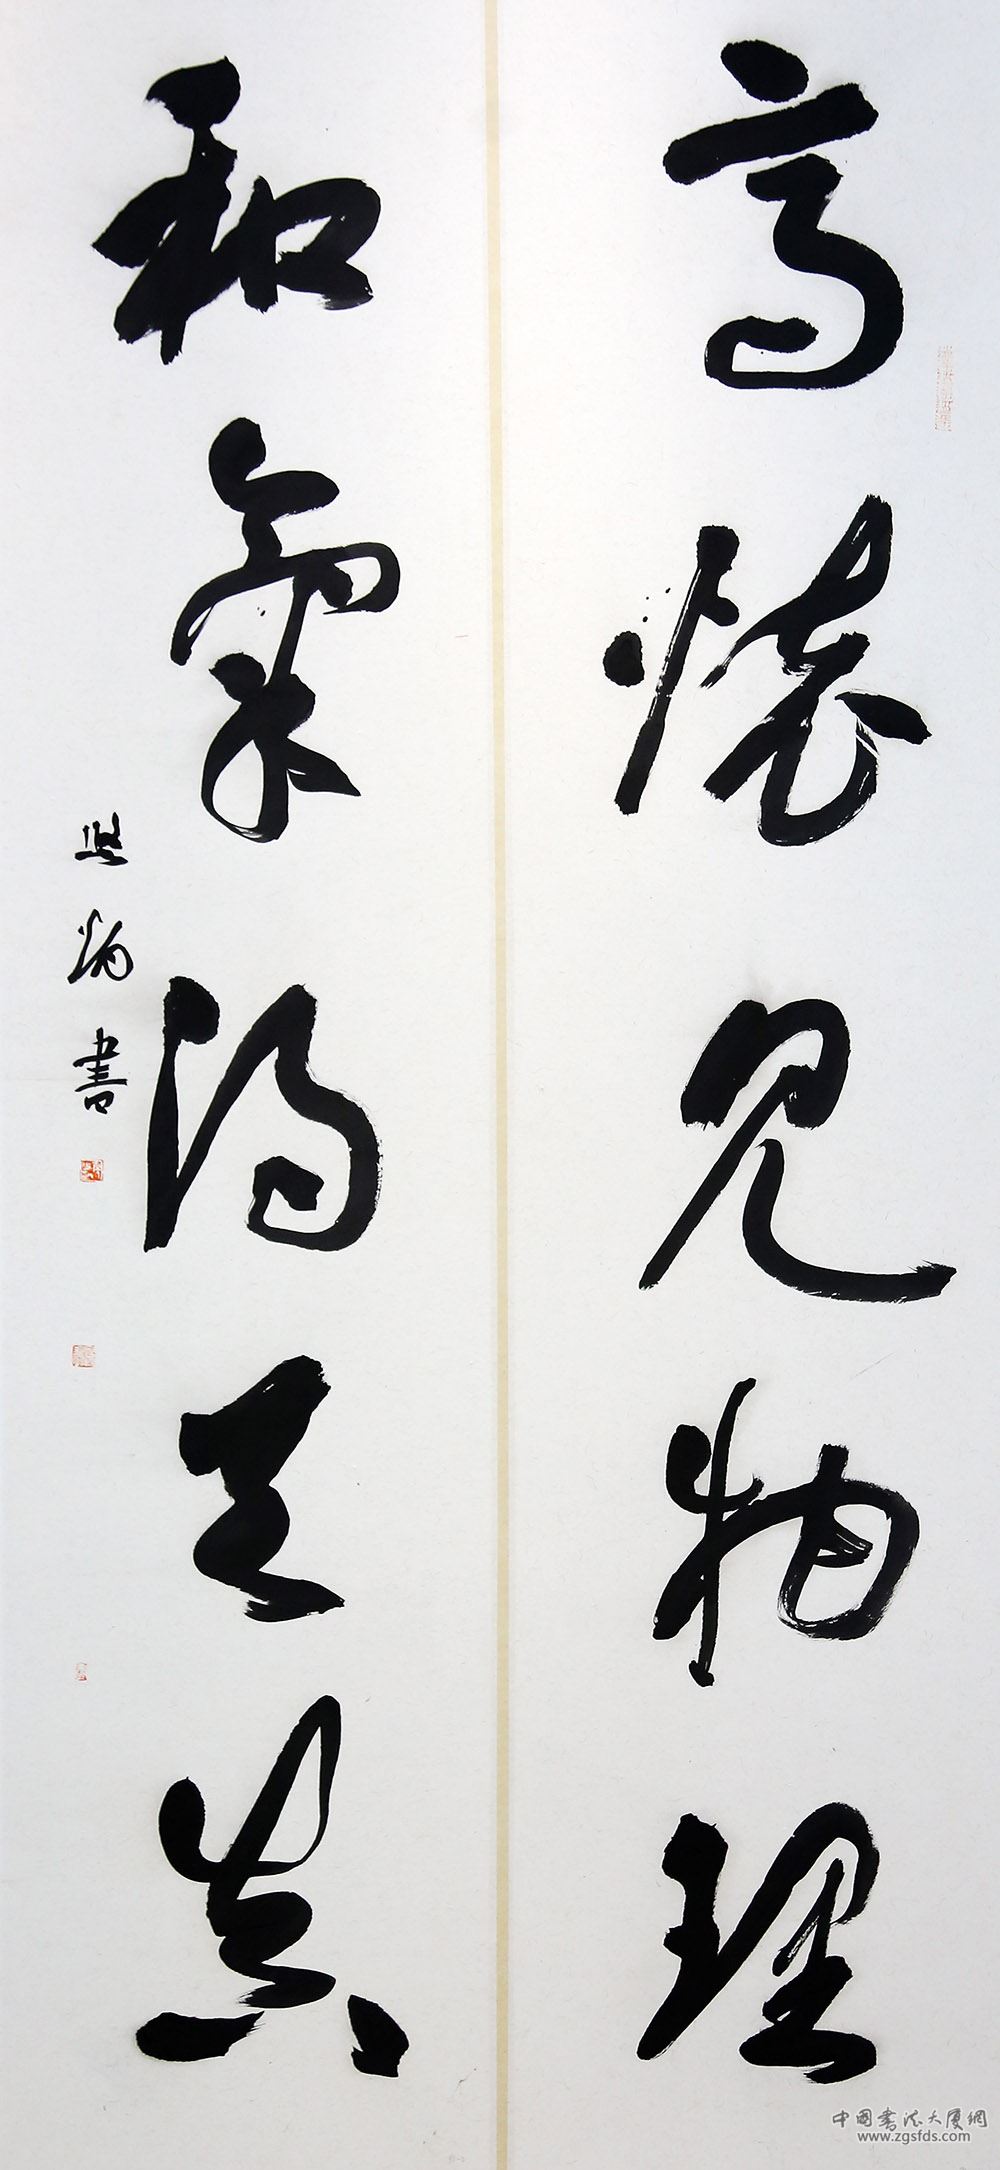 高懷見物理
和氣得天真
炳書
中国书法大厦網
www.zgsfds.com